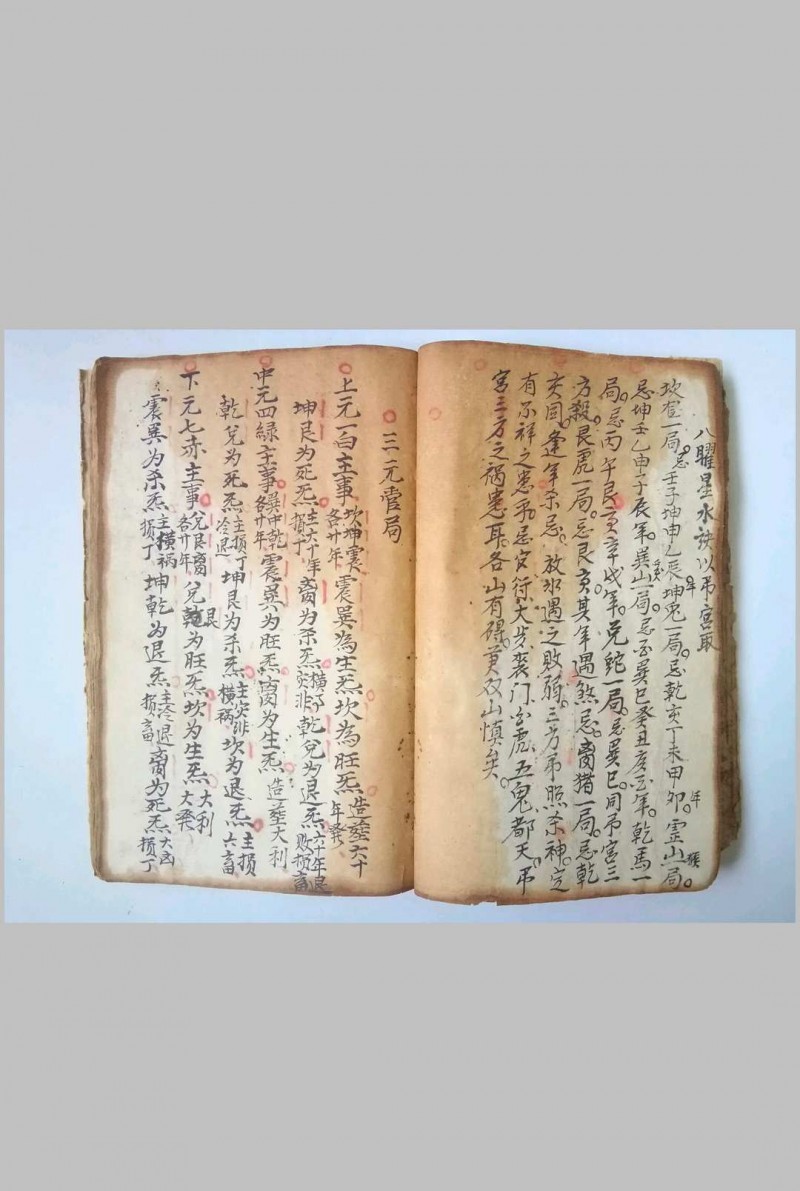 八曜星水诀以吊宫取
坎龍一局。忌壬子坤申乙辰年坤兔一局。忌乾亥丁未甲卯年。震山猴局。
忌坤壬乙申子辰年。巽山一局。忌酉巽巳癸丑庚酉年。乾馬一
局。忌丙午艮寅辛戌年。兑蛇一局。忌巽巳同吊宫三
方殺。艮虎一局。忌艮寅其年遇煞忌。离猪一局。忌乾
亥同。逢年杀忌。放水遇之敗弱。三方吊照杀神。定
有不祥之患。忌安行大步裳门白虎五鬼都天。吊
宫三方之祸患耳。各山有碍。莫双山慎矣。
三元管局
上元一白主事坎坤震各廿年震巽為生炁坎為旺炁造塟六十年發
坤艮为死炁主六十年損丁离为杀炁横祸灾非乾兌为退炁六十年退敗損畜
中元四緑主事巽中乾各廿年震巽为旺炁离为生炁造塟大利
乾兌为死炁主损丁冷退坤艮为杀炁主灾非横祸坎为退炁主损六畜
下元七赤主事兌艮离各廿年兌乾艮为旺炁坎为生炁大利大發
震巽为杀炁主横祸损丁坤乾为退炁主冷退损畜离为死炁大凶损丁